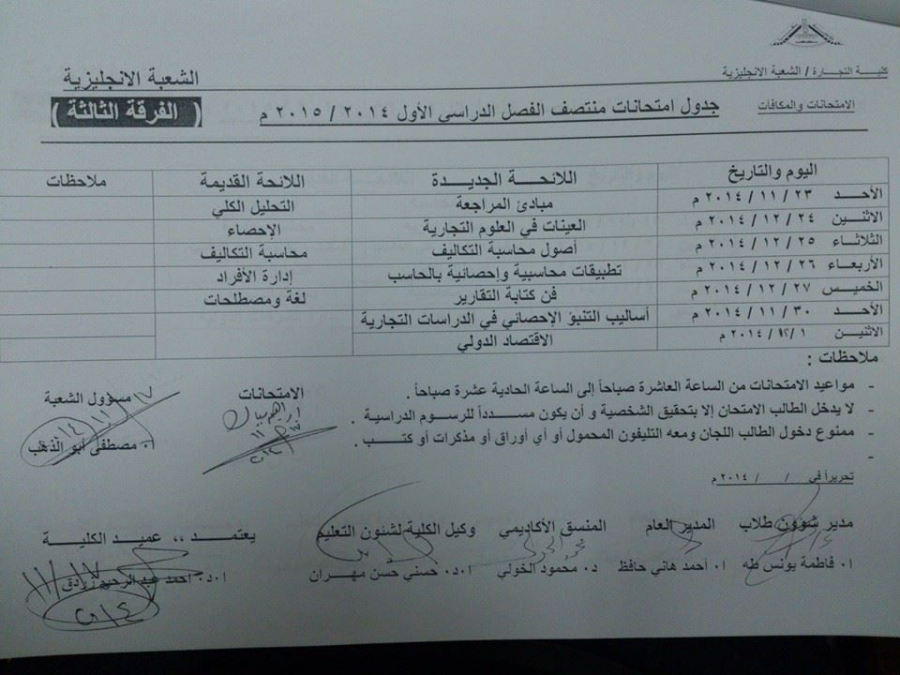 كليـة التجـارة / الشعبة الإنجليزية
الامتحانات والمكافآت
الشعبة الانجليزية
جدول امتحانات منتصف الفصل الدراسي الأول ٢٠١٤ / ٢٠١٥ م
( الفرقة الثالثة )
اليوم والتاريخ اللائحـــة الجديــدة اللائحة القديمة ملاحظات
الأحــد ٢٣ / ١١ / ٢٠١٤ م مبادئ المراجعة التحليل الكلي
الاثنين ٢٤ / ١٢ / ٢٠١٤ م العينات في العلوم التجارية الإحصاء
الثلاثـاء ٢٥ / ١٢ / ٢٠١٤ م أصول محاسبة التكاليف محاسبة التكاليف
الأربعاء ٢٦ / ١٢ / ٢٠١٤ م تطبيقات محاسبية وإحصائية بالحاسب إدارة الأفراد
الخميس ٢٧ / ١٢ / ٢٠١٤ م فن كتابة التقارير لغة ومصطلحات
الأحــد ٣٠ / ١١ / ٢٠١٤ م أساليب التنبؤ الإحصائي في الدراسات التجارية
الاثنين ١ /١٢/ ٢٠١٤ م الاقتصاد الدولي
ملاحظات :
- مواعيد الامتحانات من الساعة العاشرة صباحاً إلى الساعة الحادية عشرة صباحاً .
- لا يدخل الطالب الامتحان إلا بتحقيق الشخصية و أن يكون مسـدداً للرسوم الدراسية .
- ممنوع دخول الطالب اللجان ومعه التليفون المحمول أو أي أوراق أو مذكرات أو كتـب .
-
الامتحانات
مسؤول الشعبة
ا. مصطفى أبو الذهب
١٧/١١/٢٠١٤
تحريراً في / / ٢٠١٤ م
مدير شؤون طلاب المدير العام المنسق الأكاديمي وكيل الكلية لشئون التعليم يعتمـد ،، عميـد الكليـة
ا. فاطمة يونس طه ا. أحمد هاني حافظ د. محمود الخولي ا.د. حسني حسن مهـران ا.د. أحمد عبد الرحيم زردق
١٧/١١
٢٠١٤